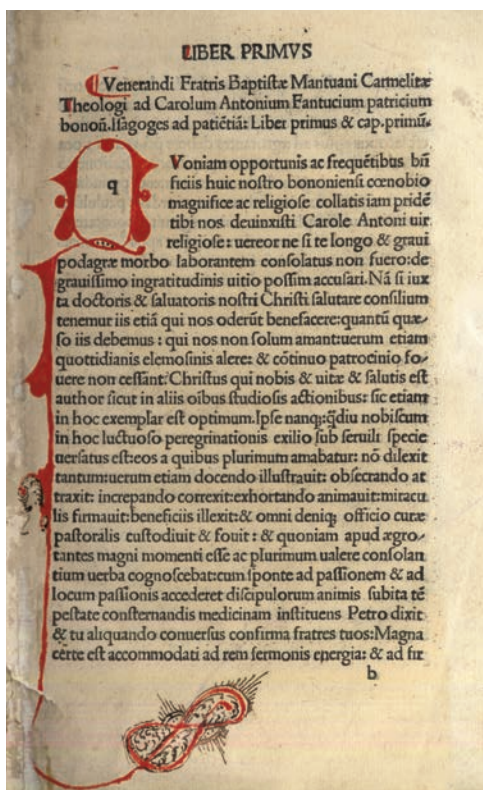 LIBER PRIMVS
Venerandi Fratris Baptistæ Mantuani Carmelitæ
Theologi ad Carolum Antonium Fantucium patricium
bonoñ. Isagoges ad patiẽtiã: Liber primus & cap. primũ.
q
Voniam opportunis ac frequẽtibus bñ
ficiis huic nostro bononiensi cœnobio
magnifice ac religiose collatis iam pridẽ
tibi nos deuinxisti Carole Antoni uir
religiose: uereor ne si te longo & graui
podagræ morbo laborantem consolatus non fuero: de
grauissimo ingratitudinis uitio possim accusari. Nã si iux
ta doctoris & saluatoris nostri Christi salutare consilium
tenemur iis etiã qui nos oderũt benefacere: quantũ quæ-
so iis debemus: qui nos non solum amant: uerum etiam
quottidianis elemosinis alere: & cõtinuo patrocinio fo-
uere non cessant. Christus qui nobis & uitæ & salutis est
author sicut in aliis oĩbus studiosis actionibus: sic etiam
in hoc exemplar est optimum. Ipse nanq; q̃diu nobiscum
in hoc luctuoso peregrinationis exilio sub seruili specie
uersatus est: eos a quibus plurimum amabatur: nõ dilexit
tantum: uerum etiam docendo illustrauit: obsecrando at
traxit: increpando correxit: exhortando animauit: miracu
lis firmauit: beneficiis illexit: & omni deniq; officio curæ
pastoralis custodiuit & fouit: & quoniam apud ægro-
tantes magni momenti esse ac plurimum ualere consolan
tium uerba cognoscebat: cum sponte ad passionem & ad
locum passionis accederet discipulorum animis subita tẽ
pestate consternandis medicinam instituens Petro dixit
& tu aliquando conuersus confirma fratres tuos: Magna
certe est accommodati ad rem sermonis energia: & ad fir
b